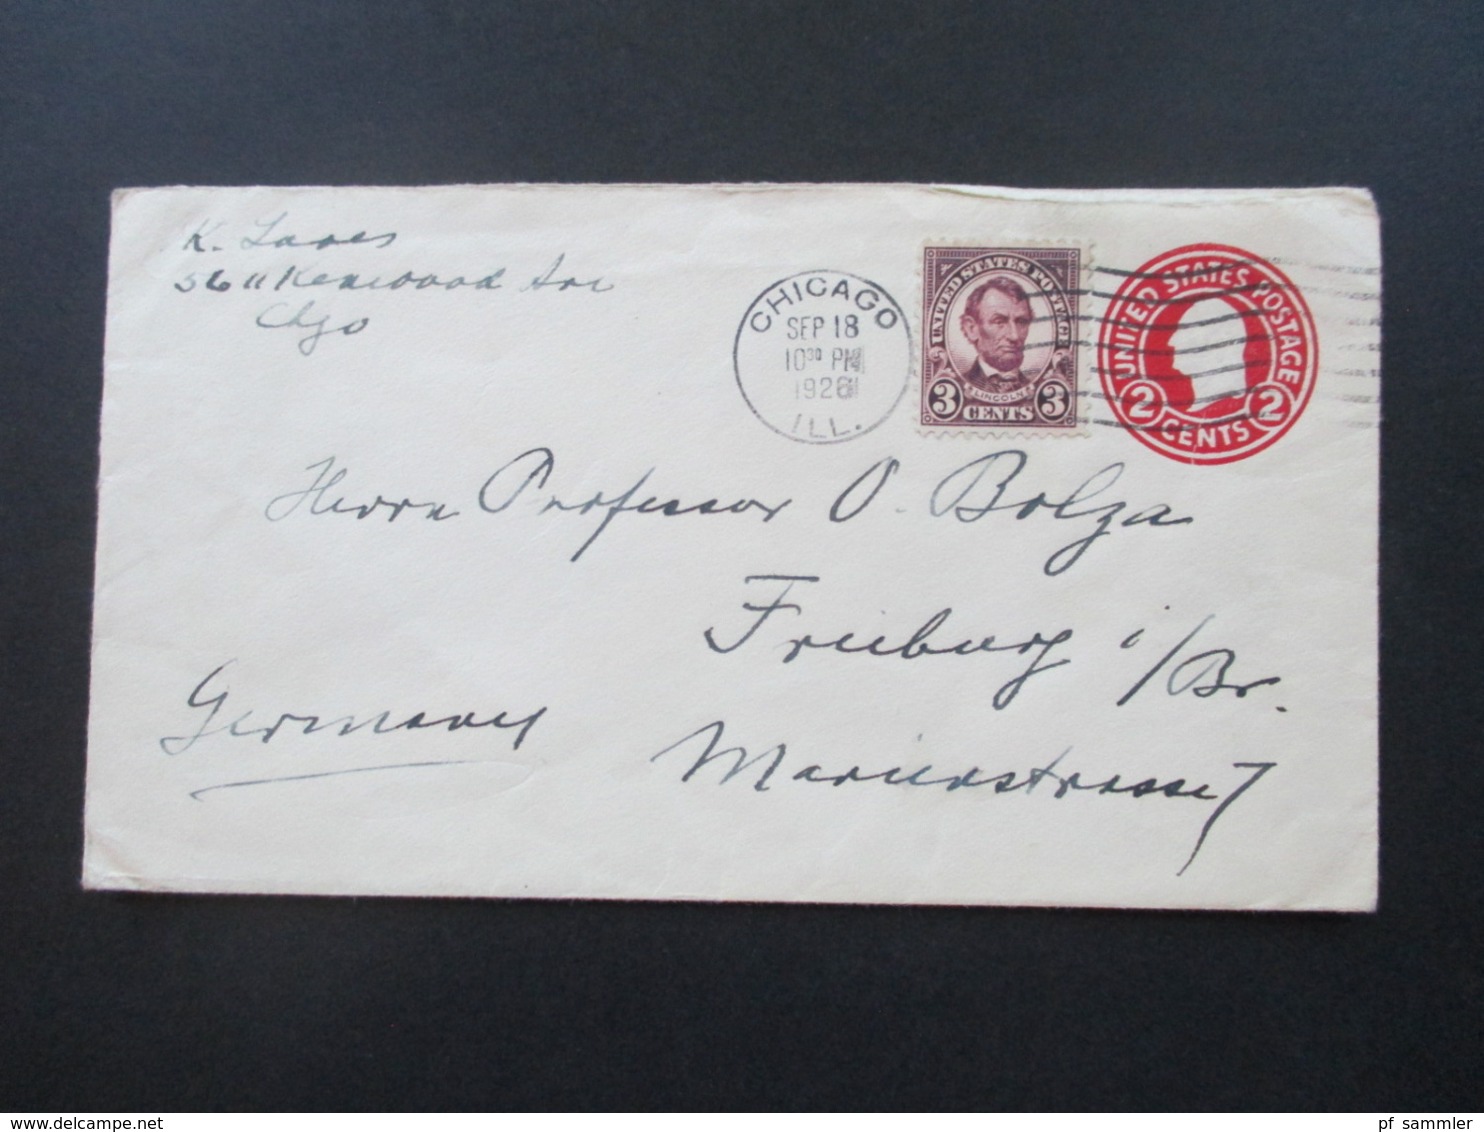 K. Laves
5611 Kenwood Ave
Chgo
CHICAGO
SEP 18
10³⁰ PM
1926
ILL.
UNITED STATES POSTAGE
LINCOLN
3 CENTS 3
UNITED STATES POSTAGE
2 CENTS 2
Herrn Professor O. Bolza
Freiburg i/Br.
Germany
Marienstrasse 7
delcampe.net
pf_sammler